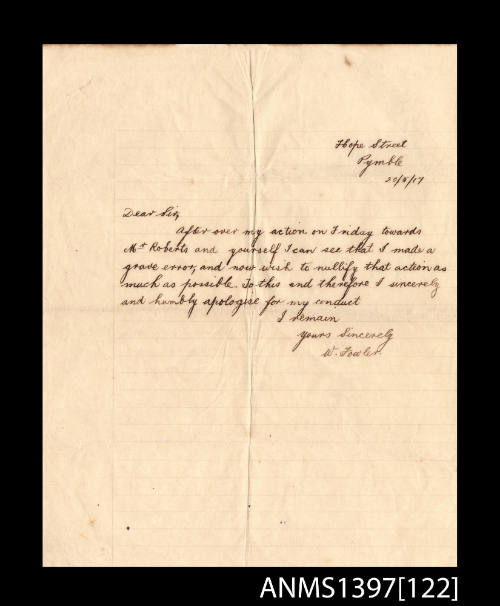 Hope Street
Pymble
20/5/17
Dear Sir,
After over my action on Friday towards
Mr Roberts and yourself I can see that I made a
grave error, and now wish to nullify that action as
much as possible. To this end therefore I sincerely
and humbly apologise for my conduct
I remain
Yours Sincerely
W. Fowler.
ANMS1397[122]